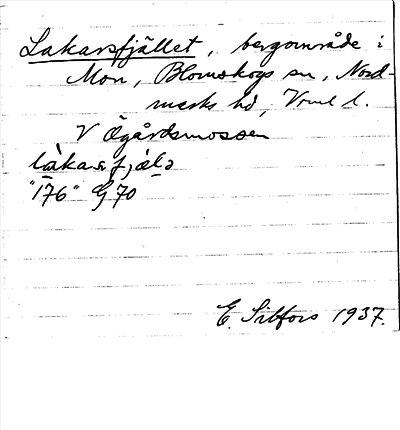 Lakarsfjället, bergområde i
Mon, Blomskogs sn, Nord-
marks hd, Vrml l.
V Ögårdsmossen
làkasfjælə
"176" G70
E. Sibfors 1937.